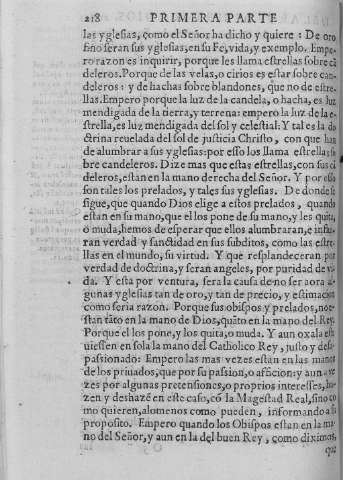 218 PRIMERA PARTE
las yglesias, como el Señor ha dicho y quiere: De oro
fino seran sus yglesias, en su Fe, vida, y exemplo. Empe-
ro razon es inquirir, porque les llama estrellas sobre cã
deleros. Porque de las velas, o cirios es estar sobre can-
deleros: y de hachas sobre blandones, que no de estre-
llas. Empero porque la luz de la candela, o hacha, es luz
mendigada de la tierra, y terrena: empero la luz de la e-
strella, es luz mendigada del sol y celestial: Y tal es la do
ctrina reuelada del sol de justicia Christo, con que han
de alumbrar a sus yglesias: por esso los llama estrellas so
bre candeleros. Dize mas que estas estrellas, con sus cã
deleros, estan en la mano derecha del Señor. Y por esso
son tales los prelados, y tales sus yglesias. De donde se
sigue, que quando Dios elige a estos prelados, quando
estan en su mano, que el los pone de su mano, y les quita,
o muda, hemos de esperar que ellos alumbraran, e influ-
ran verdad y sanctidad en sus subditos, como las estre-
llas en el mundo, su virtud. Y que resplandeceran por
verdad de doctrina, y seran angeles, por puridad de vi-
da. Y esta por ventura, sera la causa de no ser aora al-
gunas yglesias tan de oro, y tan de precio, y estimacion
como seria razon. Porque sus obispos y prelados, no es-
tan tãto en la mano de Dios, quãto en la mano del Rey.
Porque el los pone, y los quita, o muda. Y aun oxala estu
uiessen en sola la mano del Catholico Rey, justo y desa-
passionado: Empero las mas vezes estan en las manos
de los priuados, que por su passion, o aficion: y aun a ve
zes por algunas pretensiones, o proprios interesses, ha-
zen y deshazẽ en este caso, cõ la Magestad Real, sino co
mo quieren, alomenos como pueden, informando a su
proposito. Empero quando los Obispos estan en la ma
no del Señor, y aun en la del buen Rey, como diximos,
que